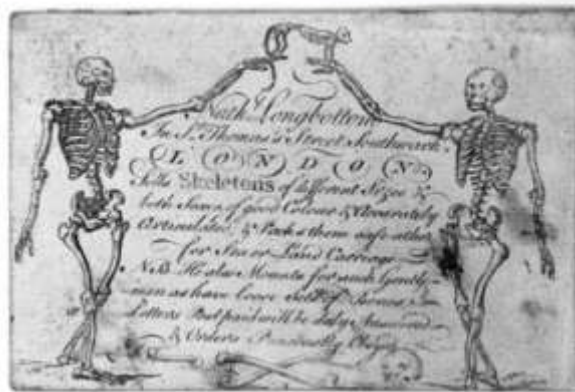 Nath.l Longbottom
In S.t Thomas's Street Southwark
LONDON
Sells Skeletons of different Sizes &
both Sexes of good Colour & Accurately
Articulated & Packs them safe either
for Sea or Land Carriage
N.B. He also Mounts for such Gentle-
men as have loose Setts of Bones
Letters Post paid will be duly Answered
& Orders Punctually Obey'd